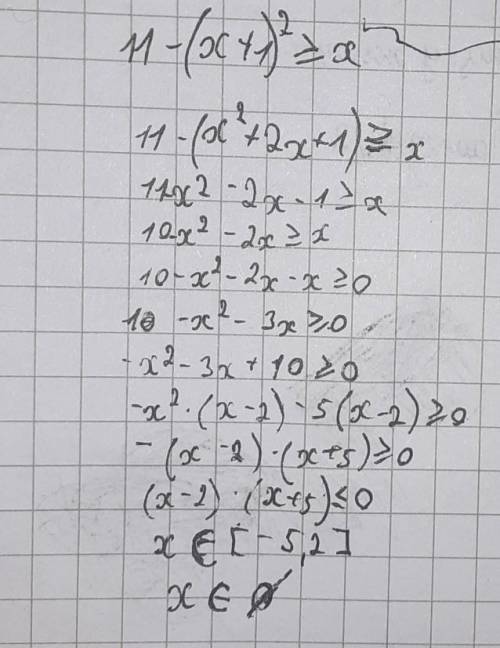 11-(x+1)² ≥ x
11-(x²+2x+1) ≥ x
11-x²-2x-1 ≥ x
10-x²-2x ≥ x
10-x²-2x-x ≥ 0
10 -x²-3x ≥ 0
-x²-3x+10 ≥ 0
-x²·(x-2)-5(x-2) ≥ 0
-(x-2)·(x+5) ≥ 0
(x-2)·(x+5) ≤ 0
x ∈ [-5,2]
x ∈ ∅